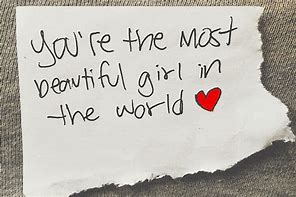 You're the most
beautiful girl in
the world ❤